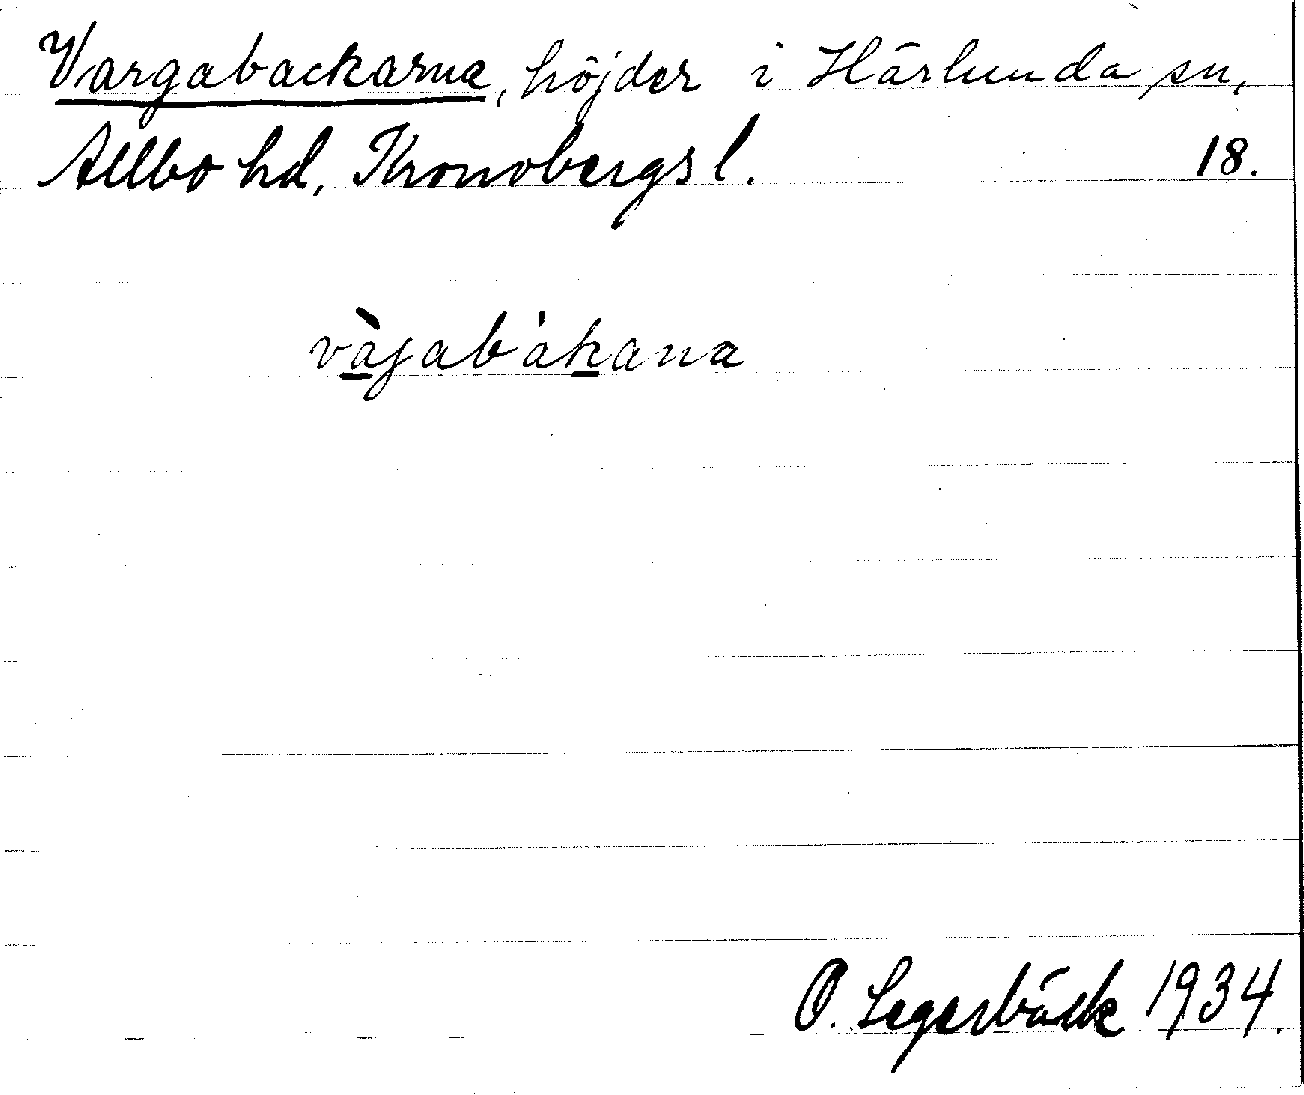 Vargabackarna, höjder i Härlunda sn,
Allbo hd, Kronobergs l. 18.
vàjabákana
O. Segerbäck 1934.